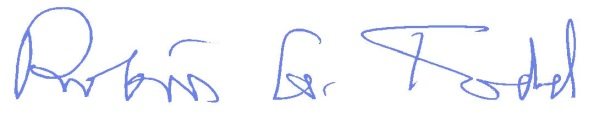 Robin G. Todd